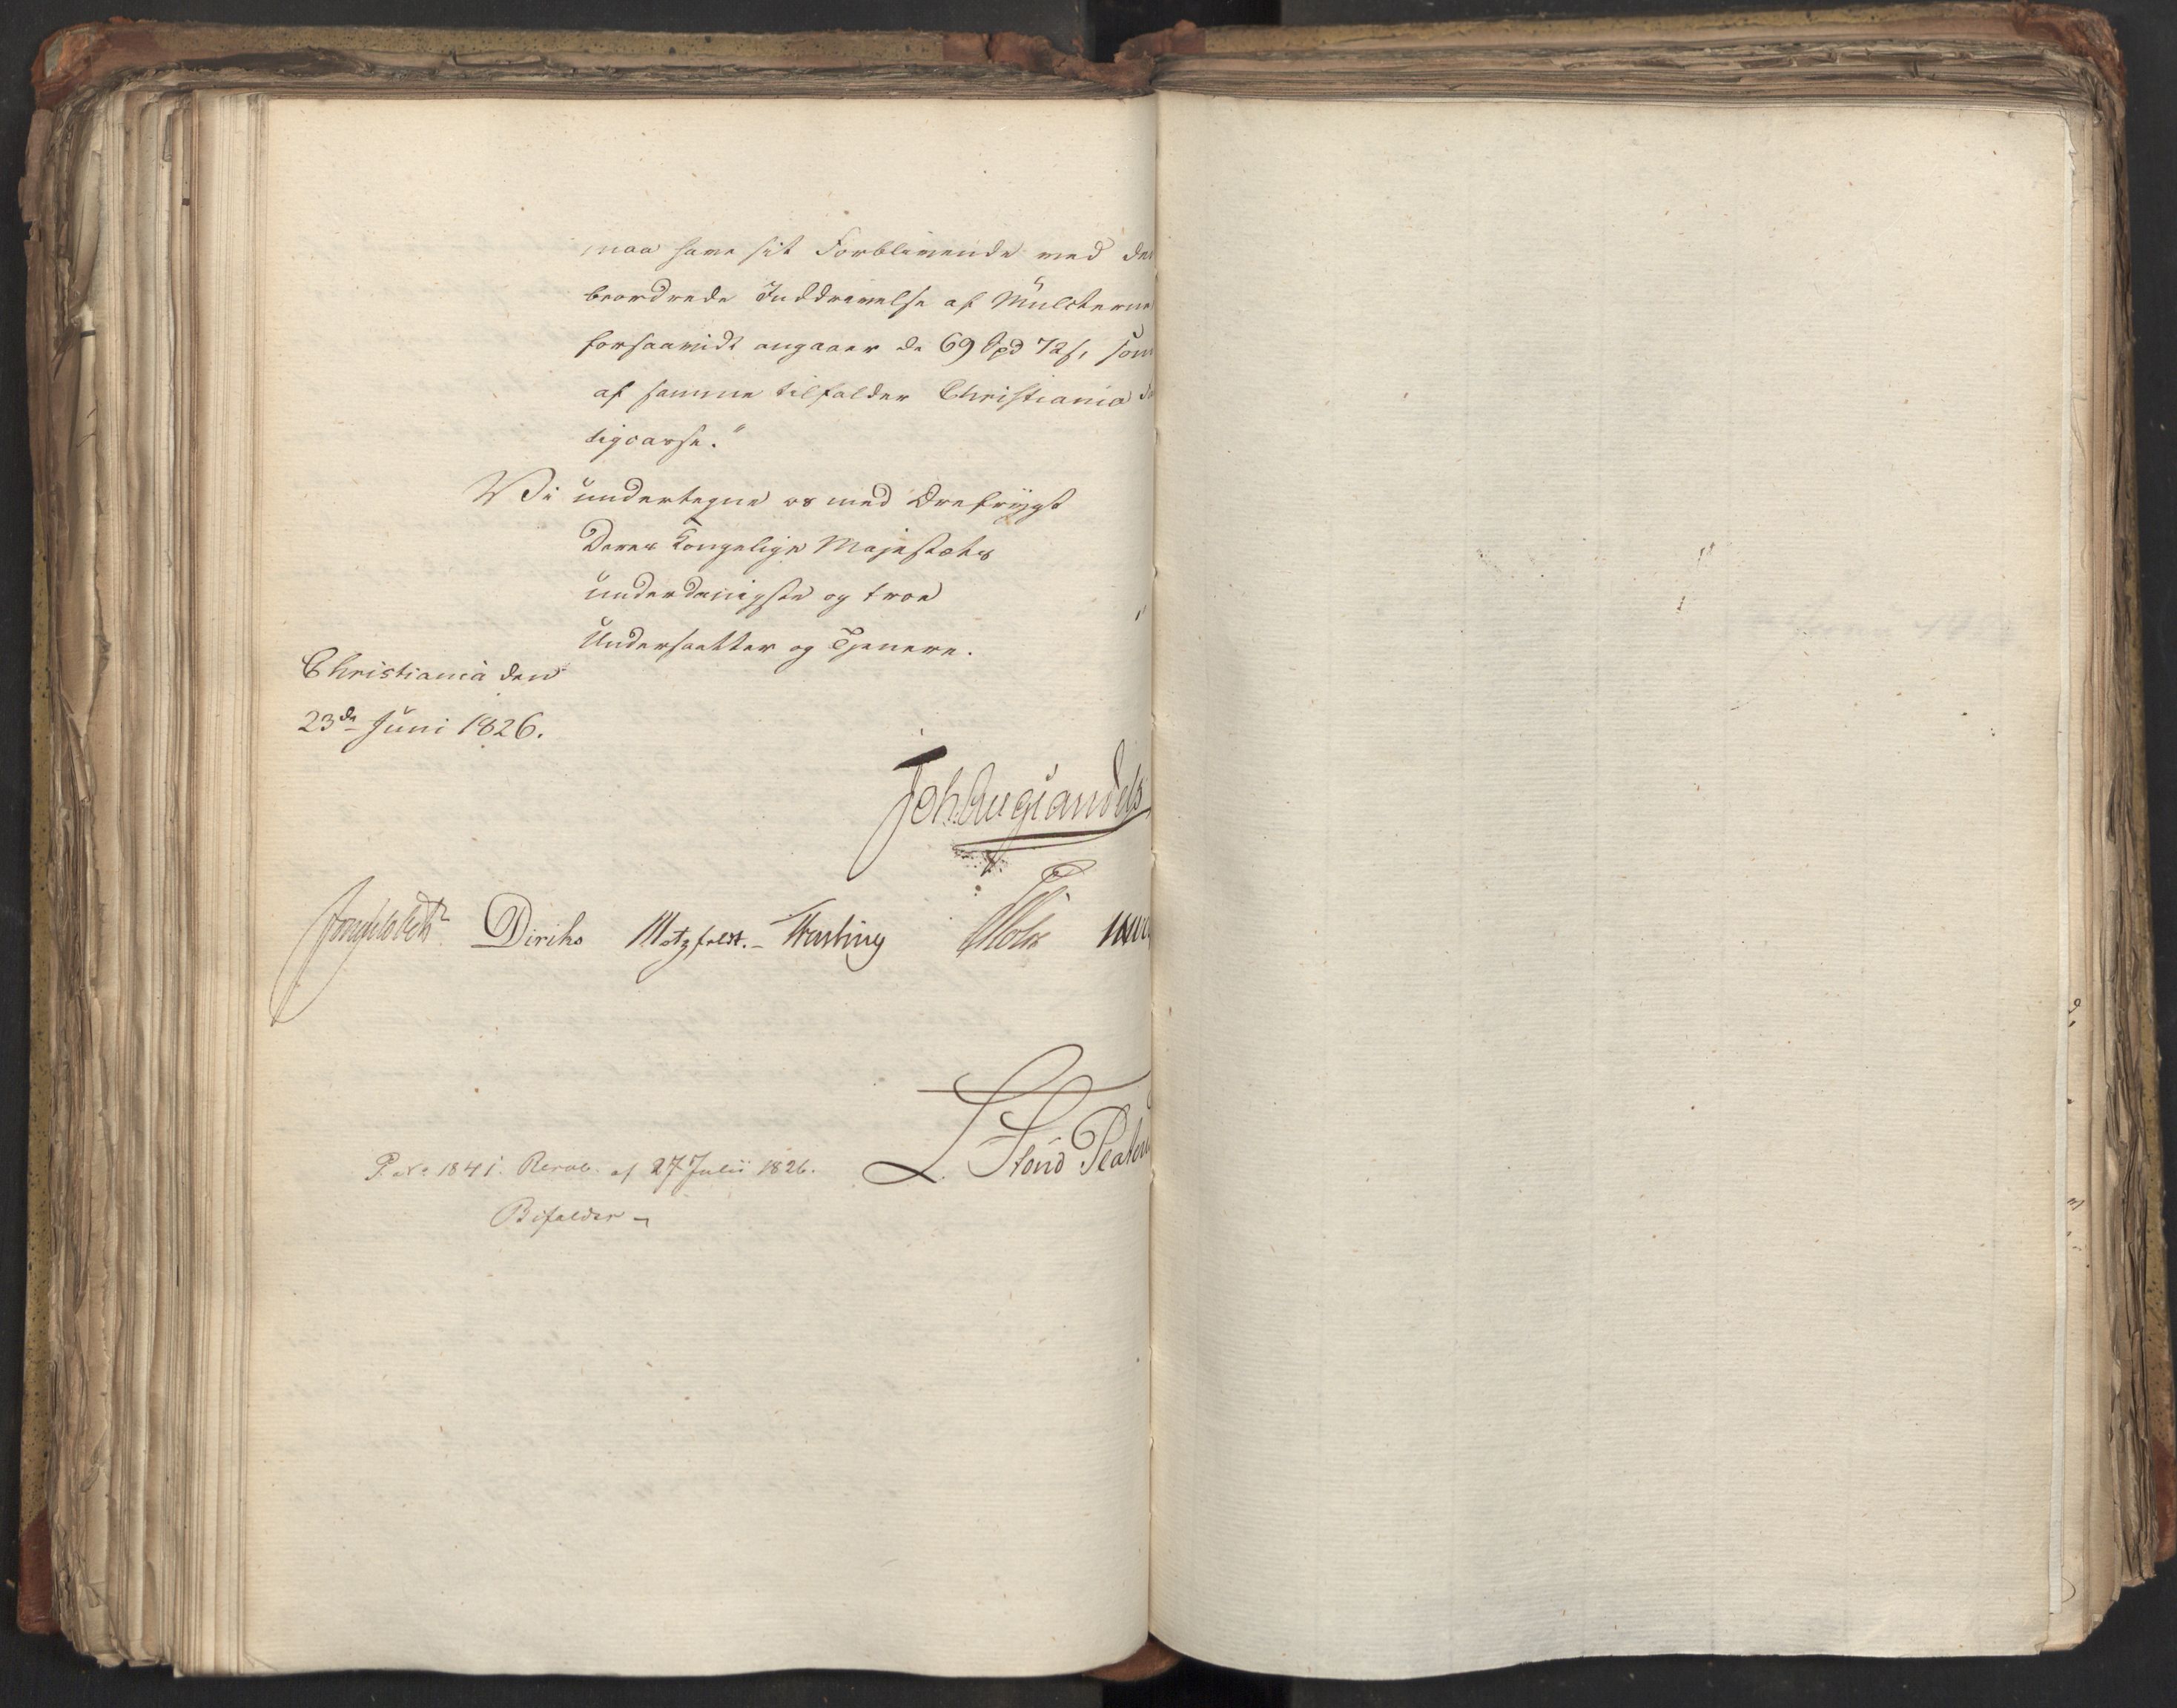 maa have sit Forblivende med den
beordrede Inddrivelse af Mulcterne
forsaavidt angaaer de 69 Spd 72 s, som
af samme tilfalder Christiania
tigcasse."
Vi undertegne os med Ærefrygt
Deres Kongelige Majestæts
underdanigste og troe
Undersaatter og Tjenere.
Christiania den
23de Juni 1826.
Joh Aug Sandels
Jonas Collett Diriks Motzfeldt.- Fasting Holst
L. Stoud Platou
P. No 1841. Resol. af 27 Julii 1826.
Bifaldes